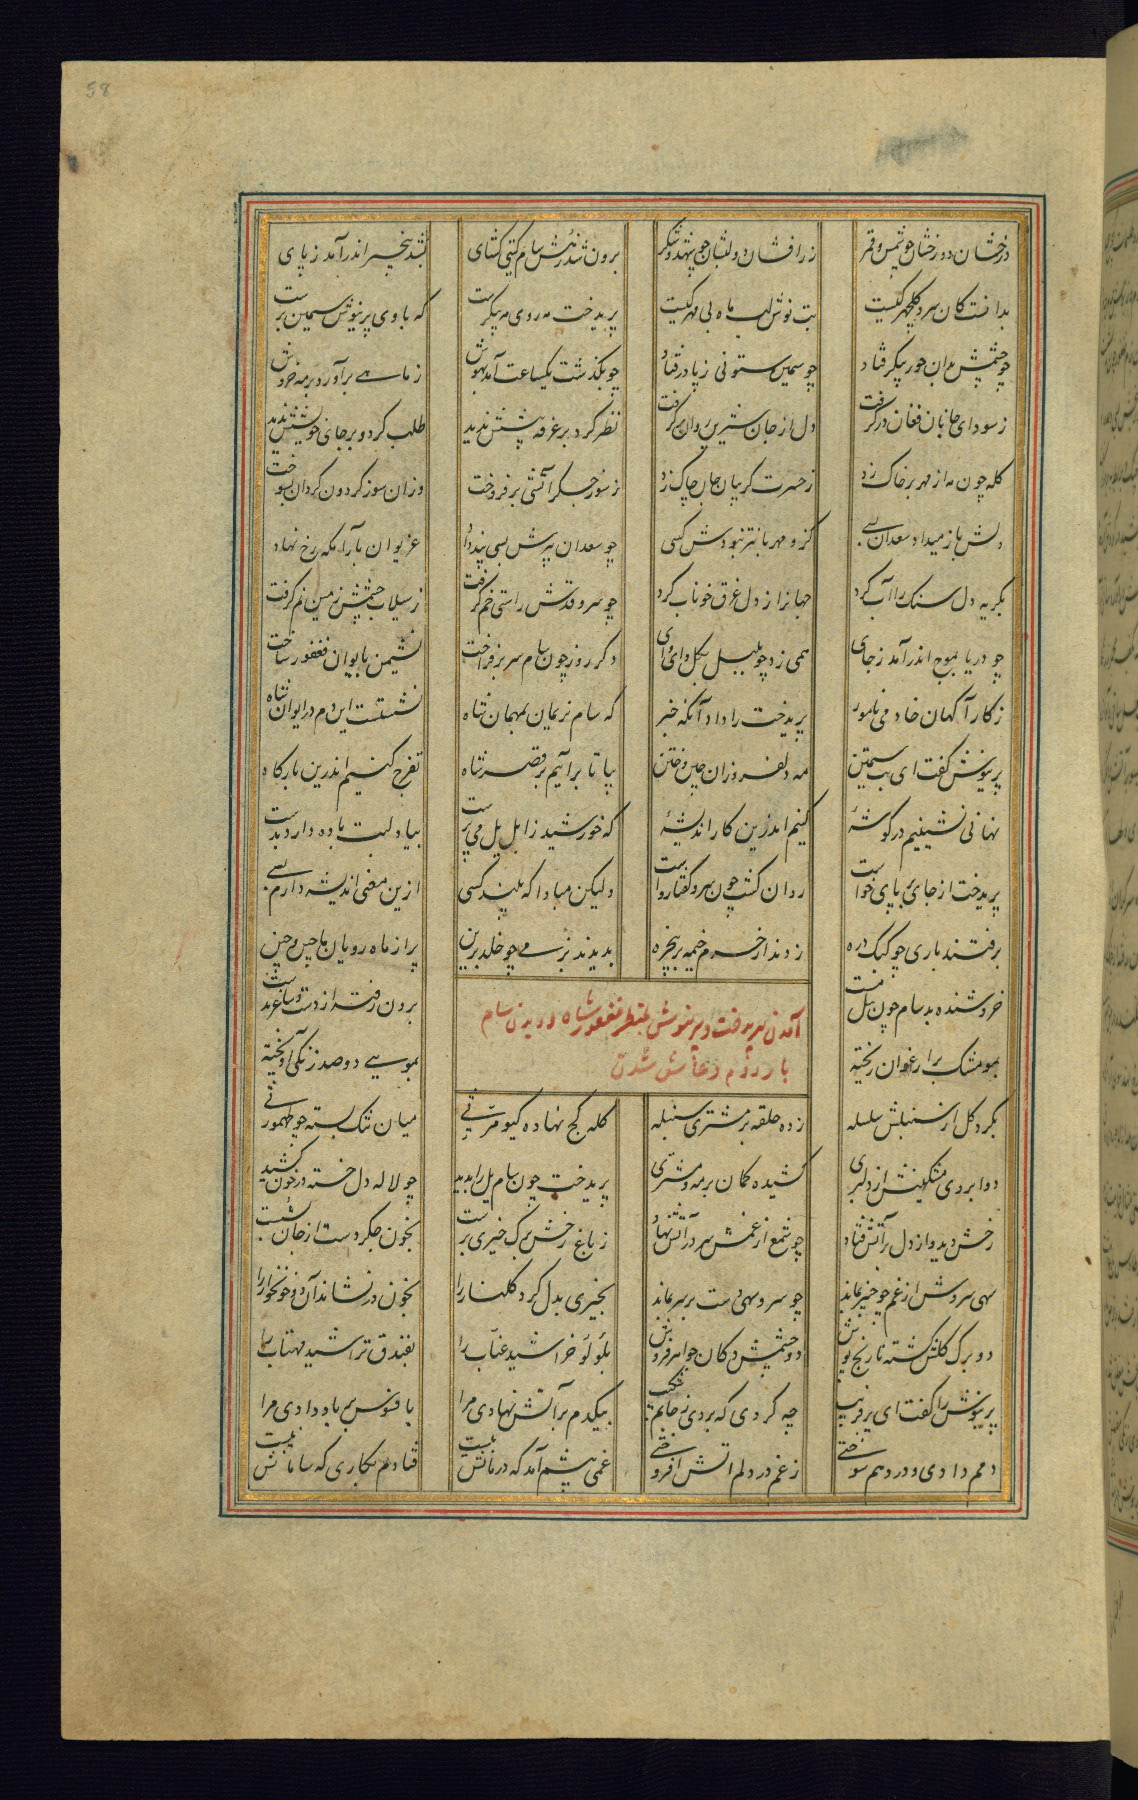 58
درخشان دو رخشان چو شمس و قمر زر افشان دو لبشان چو شهد و شکر برون شد ز هش سام گیتی گشای بشد بیخبر اندر آمد ز پای
بدانست کان سرو گلچهر کیست بت نوش لب ماه بی مهر کیست پریدخت مه روی مه پیکرست که با وی پرینوش سیمین برست
چو چشمش بدان حور پیکر فتاد چو سیمین ستونی ز پا در فتاد چو بگذشت یکساعت آمد بهوش زمانی برآورد بر مه خروش
ز سودای جانان فغان در گرفت دل از جان شیرین روان بر گرفت نظر کرد بر غرفه پشتش ندید طلب کرد و بر جای خویشتن ندید
کله چون مه از مهر بر خاک زد ز حسرت گریبان جان چاک زد ز سوز جگر آتشی بر فروخت وزان سوز گردون گردان بسوخت
دلش باز میداد سعدان بسی کزو مهربانتر نبودش کسی چو سعدان پیرش بسی پند داد غریوان بآرامگه رخ نهاد
بگریه دل سنگ را آب کرد جهانرا ز دل غرق خوناب کرد چو سرو قدش راستی خم گرفت ز سیلاب چشمش زمین نم گرفت
چو دریا بموج اندر آمد ز جای همی زد چو بلبل بگل وای وای دگر روز چون سام سر بر فراخت نشیمن بایوان فغفور ساخت
ز کار آگهان خادمی نامور پریدخت را داد آنگه خبر که سام نریمان بمهمان شاه نشستست این دم در ایوان شاه
پرینوش گفت ای بت سیمتن مه دلفروزان چین و ختن بیا تا برآئیم بر قصر شاه تفرج کنیم اندرین بارگاه
نهانی نشینیم در گوشهٔ کنیم اندرین کار اندیشهٔ که خورشید زابل یل می پرست بیاد لبت باده دارد بدست
پریدخت از جای بر پای خواست روان گشت چون سرو گفتار راست ولیکن مبادا که بیند کسی ازین معنی اندیشه دارم بسی
برفتند باری چو کبک دره زدند از حرم خیمه بر پنجره بدیدند بزمی چو خلد برین پر از ماه رویان ماچین و چین
آمدن پریدخت و پرینوش بمنظر فغفور شاه و دیدن سام
بار دوم و عاشق شدن
خروشنده بد سام چون پیل مست برون رفته از دست و ساغر بدست
بمو مشک بر ارغوان ریخته بمویی دو صد زنگی آویخته
بگرد گل از سنبلش سلسله زده حلقه بر مشتری سنبله کله کج نهاده کیومرثی میان تنگ بسته چو طهمورثی
دو ابروی مشکینش از دلبری کشیده کمان بر مه و مشتری پریدخت چون سام یل را بدید چو لاله دل خسته در خون کشید
رخش دید و از دل بر آتش فتاد چو شمع از غمش سر در آتش نهاد ز باغ رخش برگ خیری برست بخون جگر دست از جان بشست
سهی سروش از غم چو خنجر بماند چو سرو سهی دست بر سر بماند بخیری بدل کرد گلنار را بخون در نشاند آن دو خونخوار را
دو برگ گلش گشته نارنج پوش دو چشمش دکان جواهر فروش بلؤلؤ خراشید عناب را بفندق تراشید مهتاب را
پرینوش را گفت ای پر فریب چه کردی که بردی ز جانم شکیب بیکدم بر آتش نهادی مرا بافسوس بر باد دادی مرا
دمم دادی و در دهم سوختی ز غم در دلم آتش افروختی غمی پیشم آمد که درمانش نیست فتادم بکاری که سامانش نیست